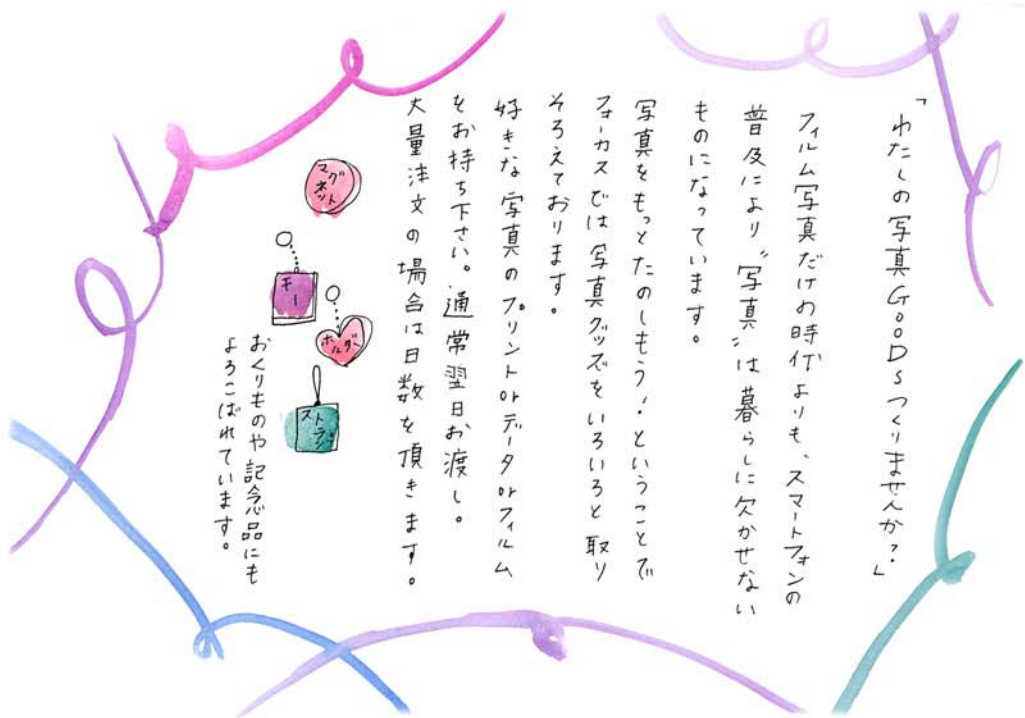 「わたしの写真GOODSつくりませんか?」
フィルム写真だけの時代よりも、スマートフォンの
普及により〝写真〟は暮らしに欠かせない
ものになっています。
写真をもっとたのしもう!ということで
フォーカスでは写真グッズをいろいろと取り
そろえております。
好きな写真のプリントorデータorフィルム
をお持ち下さい。通常翌日お渡し。
大量注文の場合は日数を頂きます。
マグ
ネット
キー
ホルダー
ストラップ
おくりものや記念品にも
よろこばれています。